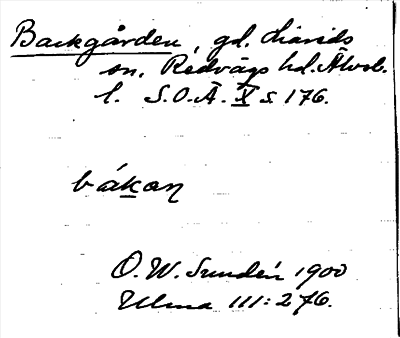 Backgården, gd. Liareds
sn. Redvägs hd. Älvsb.
l. S.O.Ä. X s. 176.
bákaŋ
O. W. Sundén 1900
Ulma 111:276.